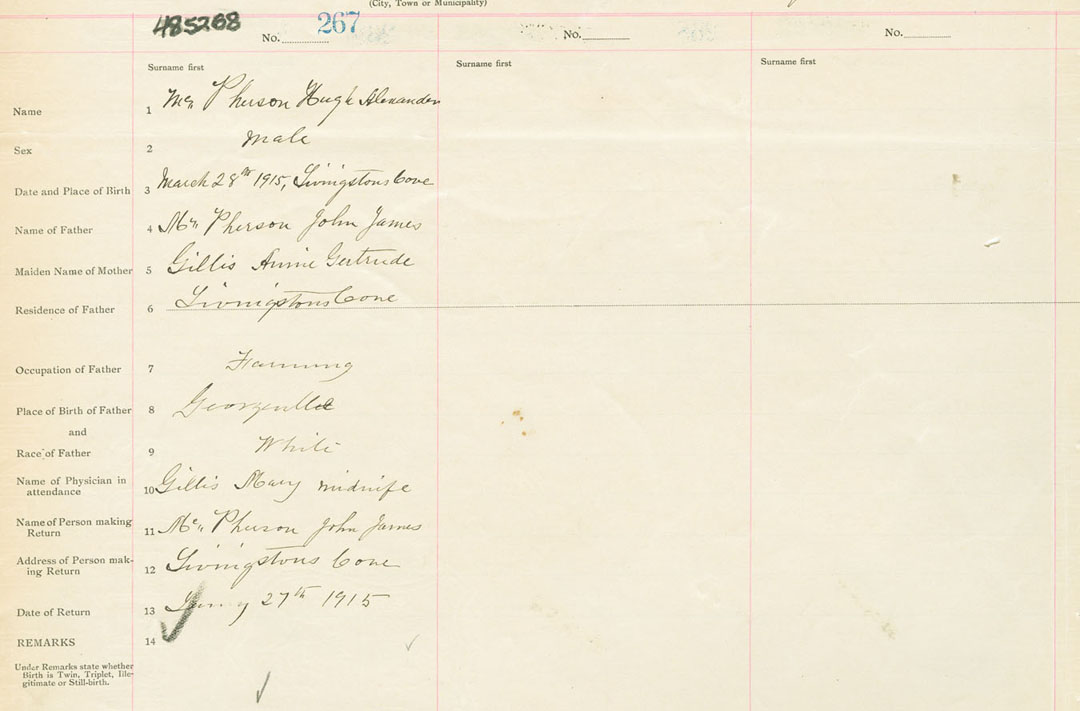 (City, Town or Municipality)
485268
No. 267
No.
No.
Surname first
Surname first
Surname first
Name 1 Mc Pherson Hugh Alexander
Sex 2 Male
Date and Place of Birth 3 March 28th 1915, Livingstons Cove
Name of Father 4 Mc Pherson John James
Maiden Name of Mother 5 Gillis Annie Gertrude
Residence of Father 6 Livingstons Cove
Occupation of Father 7 Farming
Place of Birth of Father 8 Georgeville
and
Race of Father 9 White
Name of Physician in
attendance 10 Gillis Mary midwife
Name of Person making
Return 11 Mc Pherson John James
Address of Person mak-
ing Return 12 Livingstons Cove
Date of Return 13 27th 1915
REMARKS 14
Under Remarks state whether
Birth is Twin, Triplet, Ille-
gitimate or Still-birth.